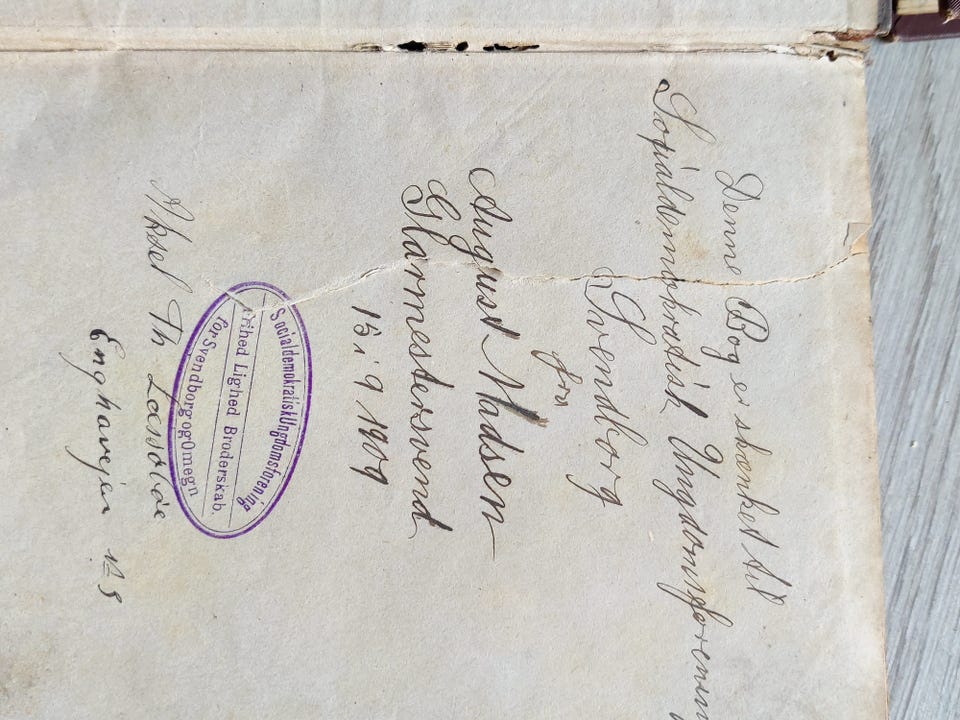 Denne Bog er skænket til
Sosialdemokratisk Ungdomsforening
Svendborg
fra
August Madsen
Glarmestersvend
15 i 9 1909
Socialdemokratisk Ungdomsforening
Frihed Lighed Broderskab.
for Svendborg og Omegn
Aksel Th
Enghavejen